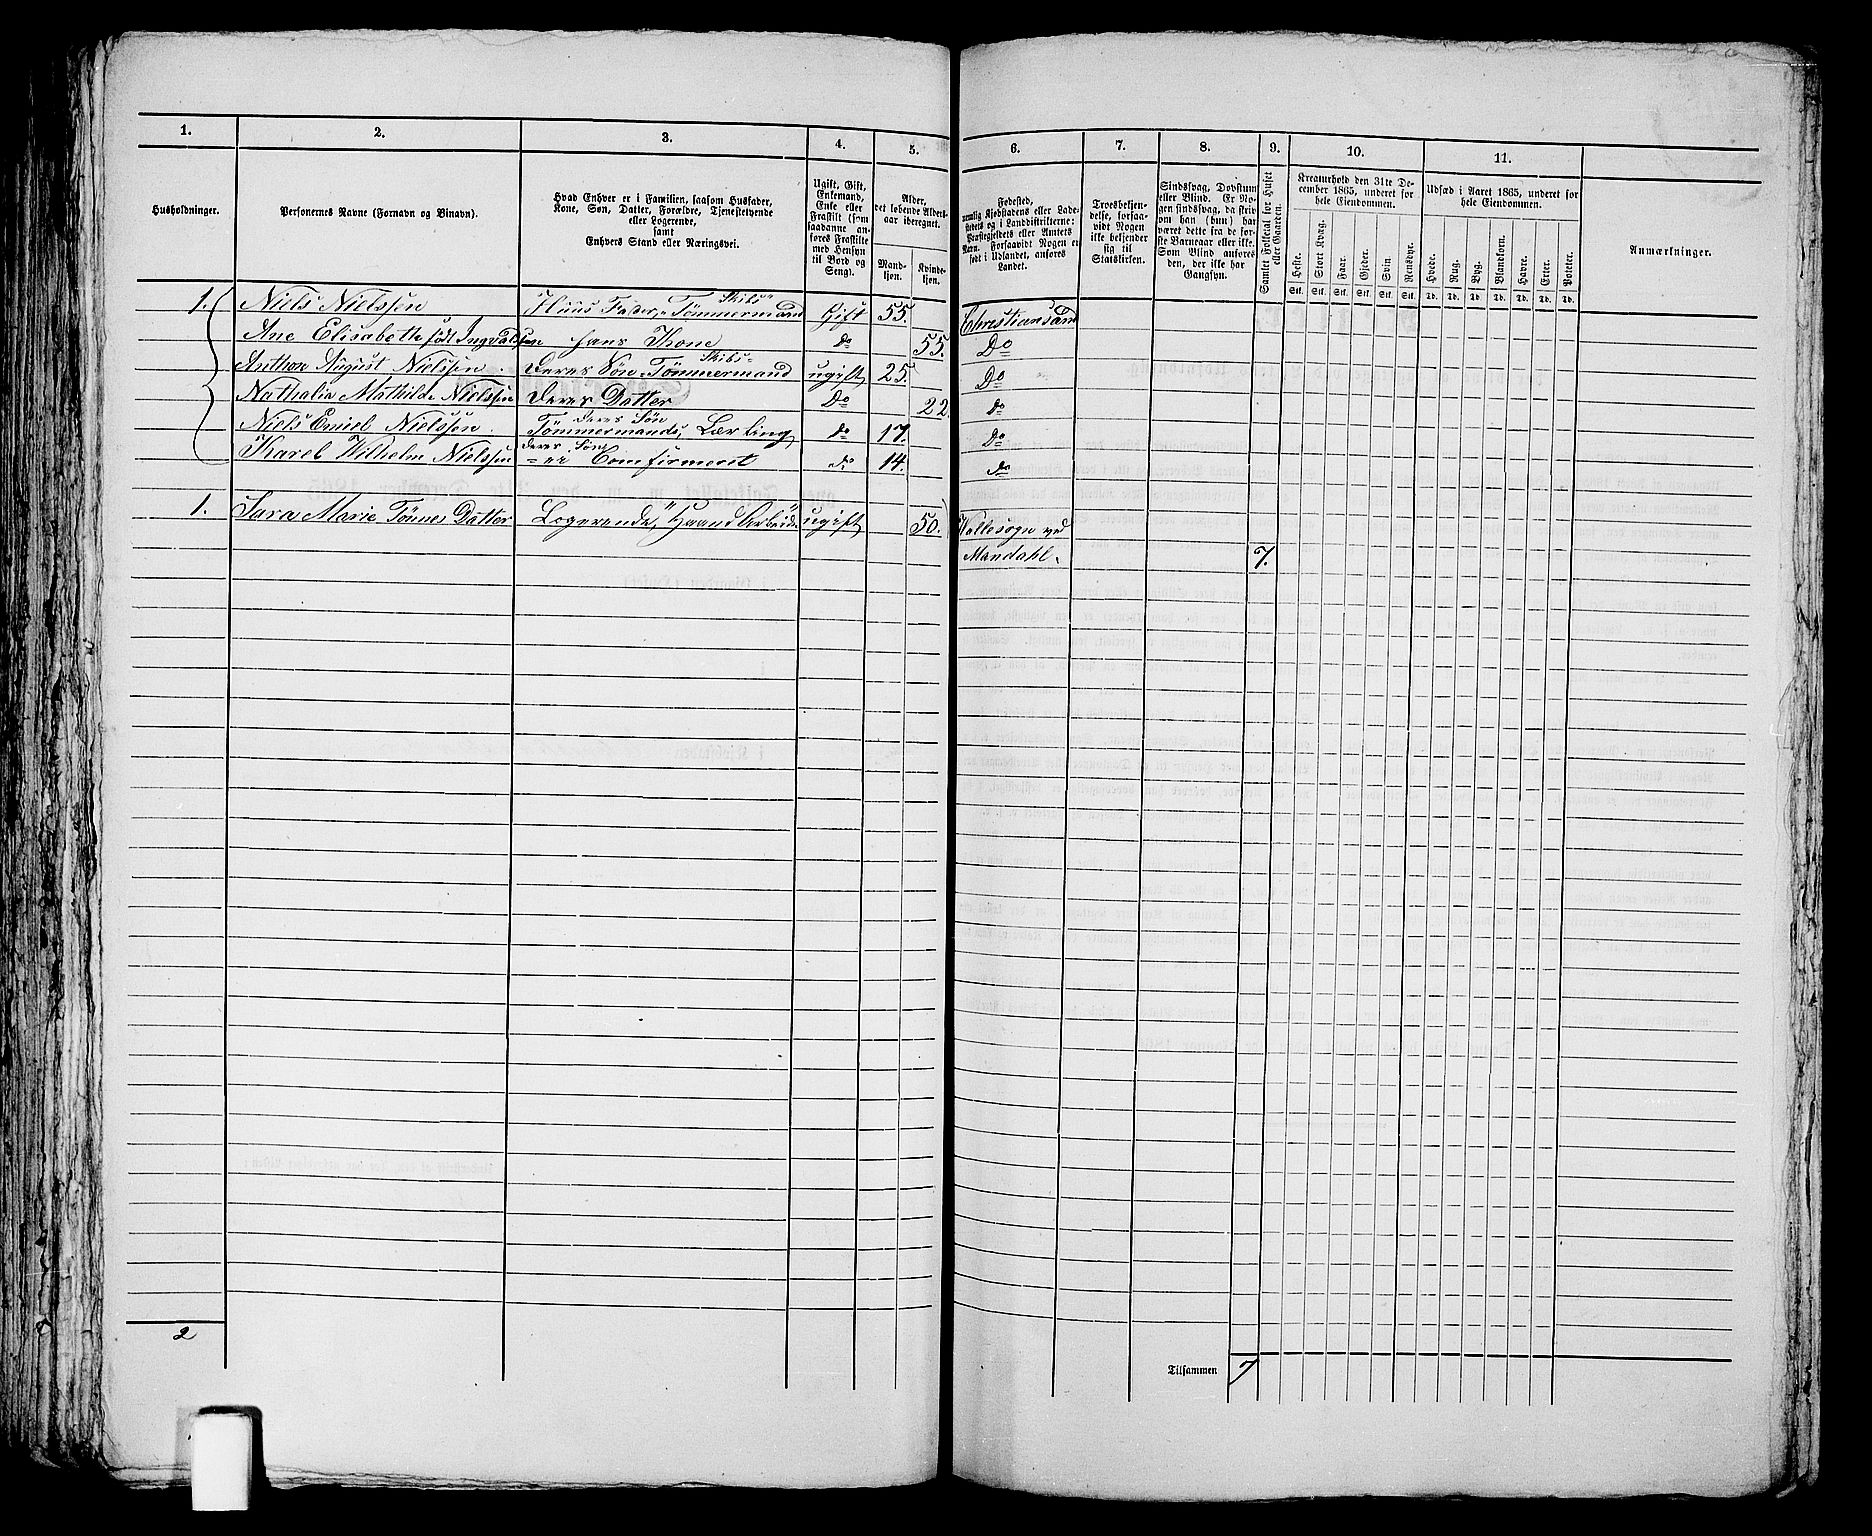 1. 2. 3. 4. 5. 6. 7. 8. 9. 10. 11.
Husholdninger.
Personernes Navne (Fornavn og Binavn).
Hvad Enhver er i Familien, saasom Husfader,
Kone, Søn, Datter, Forældre, Tjenestetyende
eller Logerende,
samt
Enhvers Stand eller Næringsvei.
Ugift, Gift,
Enkemand,
Enke eller
Fraskilt (som
saadanne an-
føres Fraskilte
med Hensyn
til Bord og
Seng).
Alder,
det løbende Alders-
aar iberegnet.
Mand-
kjøn.
Kvinde-
kjøn.
Fødested,
nemlig Kjøbstadens eller Lade-
stedets og i Landdistrikterne:
Præstegjeldets eller Amtets
Navn. Forsaavidt Nogen er
født i Udlandet, anføres
Landet.
Troesbekjen-
delse, forsaa-
vidt Nogen
ikke bekjender
sig til
Statskirken.
Sindssvag, Døvstum
eller Blind. Er No-
gen sindssvag, da skri-
ves om han (hun) har
været dette fra de før-
ste Barneaar eller ikke.
Som Blind anføres
den, der ikke har
Gangsyn.
Samlet Folketal for Huset
eller Gaarden.
Kreaturhold den 31te De-
cember 1865, underet for
hele Eiendommen.
Heste. Stort Kvæg. Faar. Gjeder. Svin. Rensdyr.
Stk. Stk. Stk. Stk. Stk. Stk.
Udsæd i Aaret 1865, underet for
hele Eiendommen.
Hvede. Rug. Byg. Blandkorn. Havre. Erter. Poteter.
Td. Td. Td. Td. Td. Td. Td.
Anmærkninger.
1. Niels Nielssen Huus Fader, Skibs Tømmermand Gift 55. Christiansand
Ane Elisabeth født Ingvaldsen hans Kone do 55. Do
Anthon August Nielssen. Deres Søn Skibs- Tømmermand ugift 25. Do
Nathalia Mathilde Nielssen Deres Datter Do 22. do
Niels Emiel Nielssen. Deres Søn Tømmermands, Lærling do 17. Do
Karel Wilhelm Nielssen Deres Søn er Comfirmeret do 14. do
1. Sara Marie Tønnes Datter Logerende, "Haand Arbeide" ugift 50. Hallesogn ved
Mandahl. 7.
2
Tilsammen 7